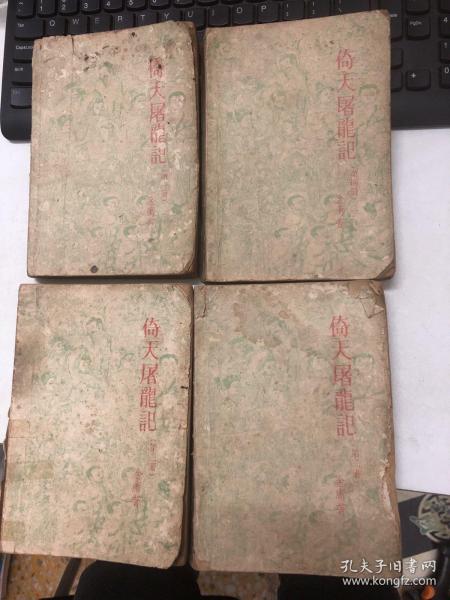 倚天屠龍記
金庸著
倚天屠龍記
(第四册)
金庸著
倚天屠龍記
金庸著
倚天屠龍記
金庸著
孔夫子旧书网
www.kongfz.com